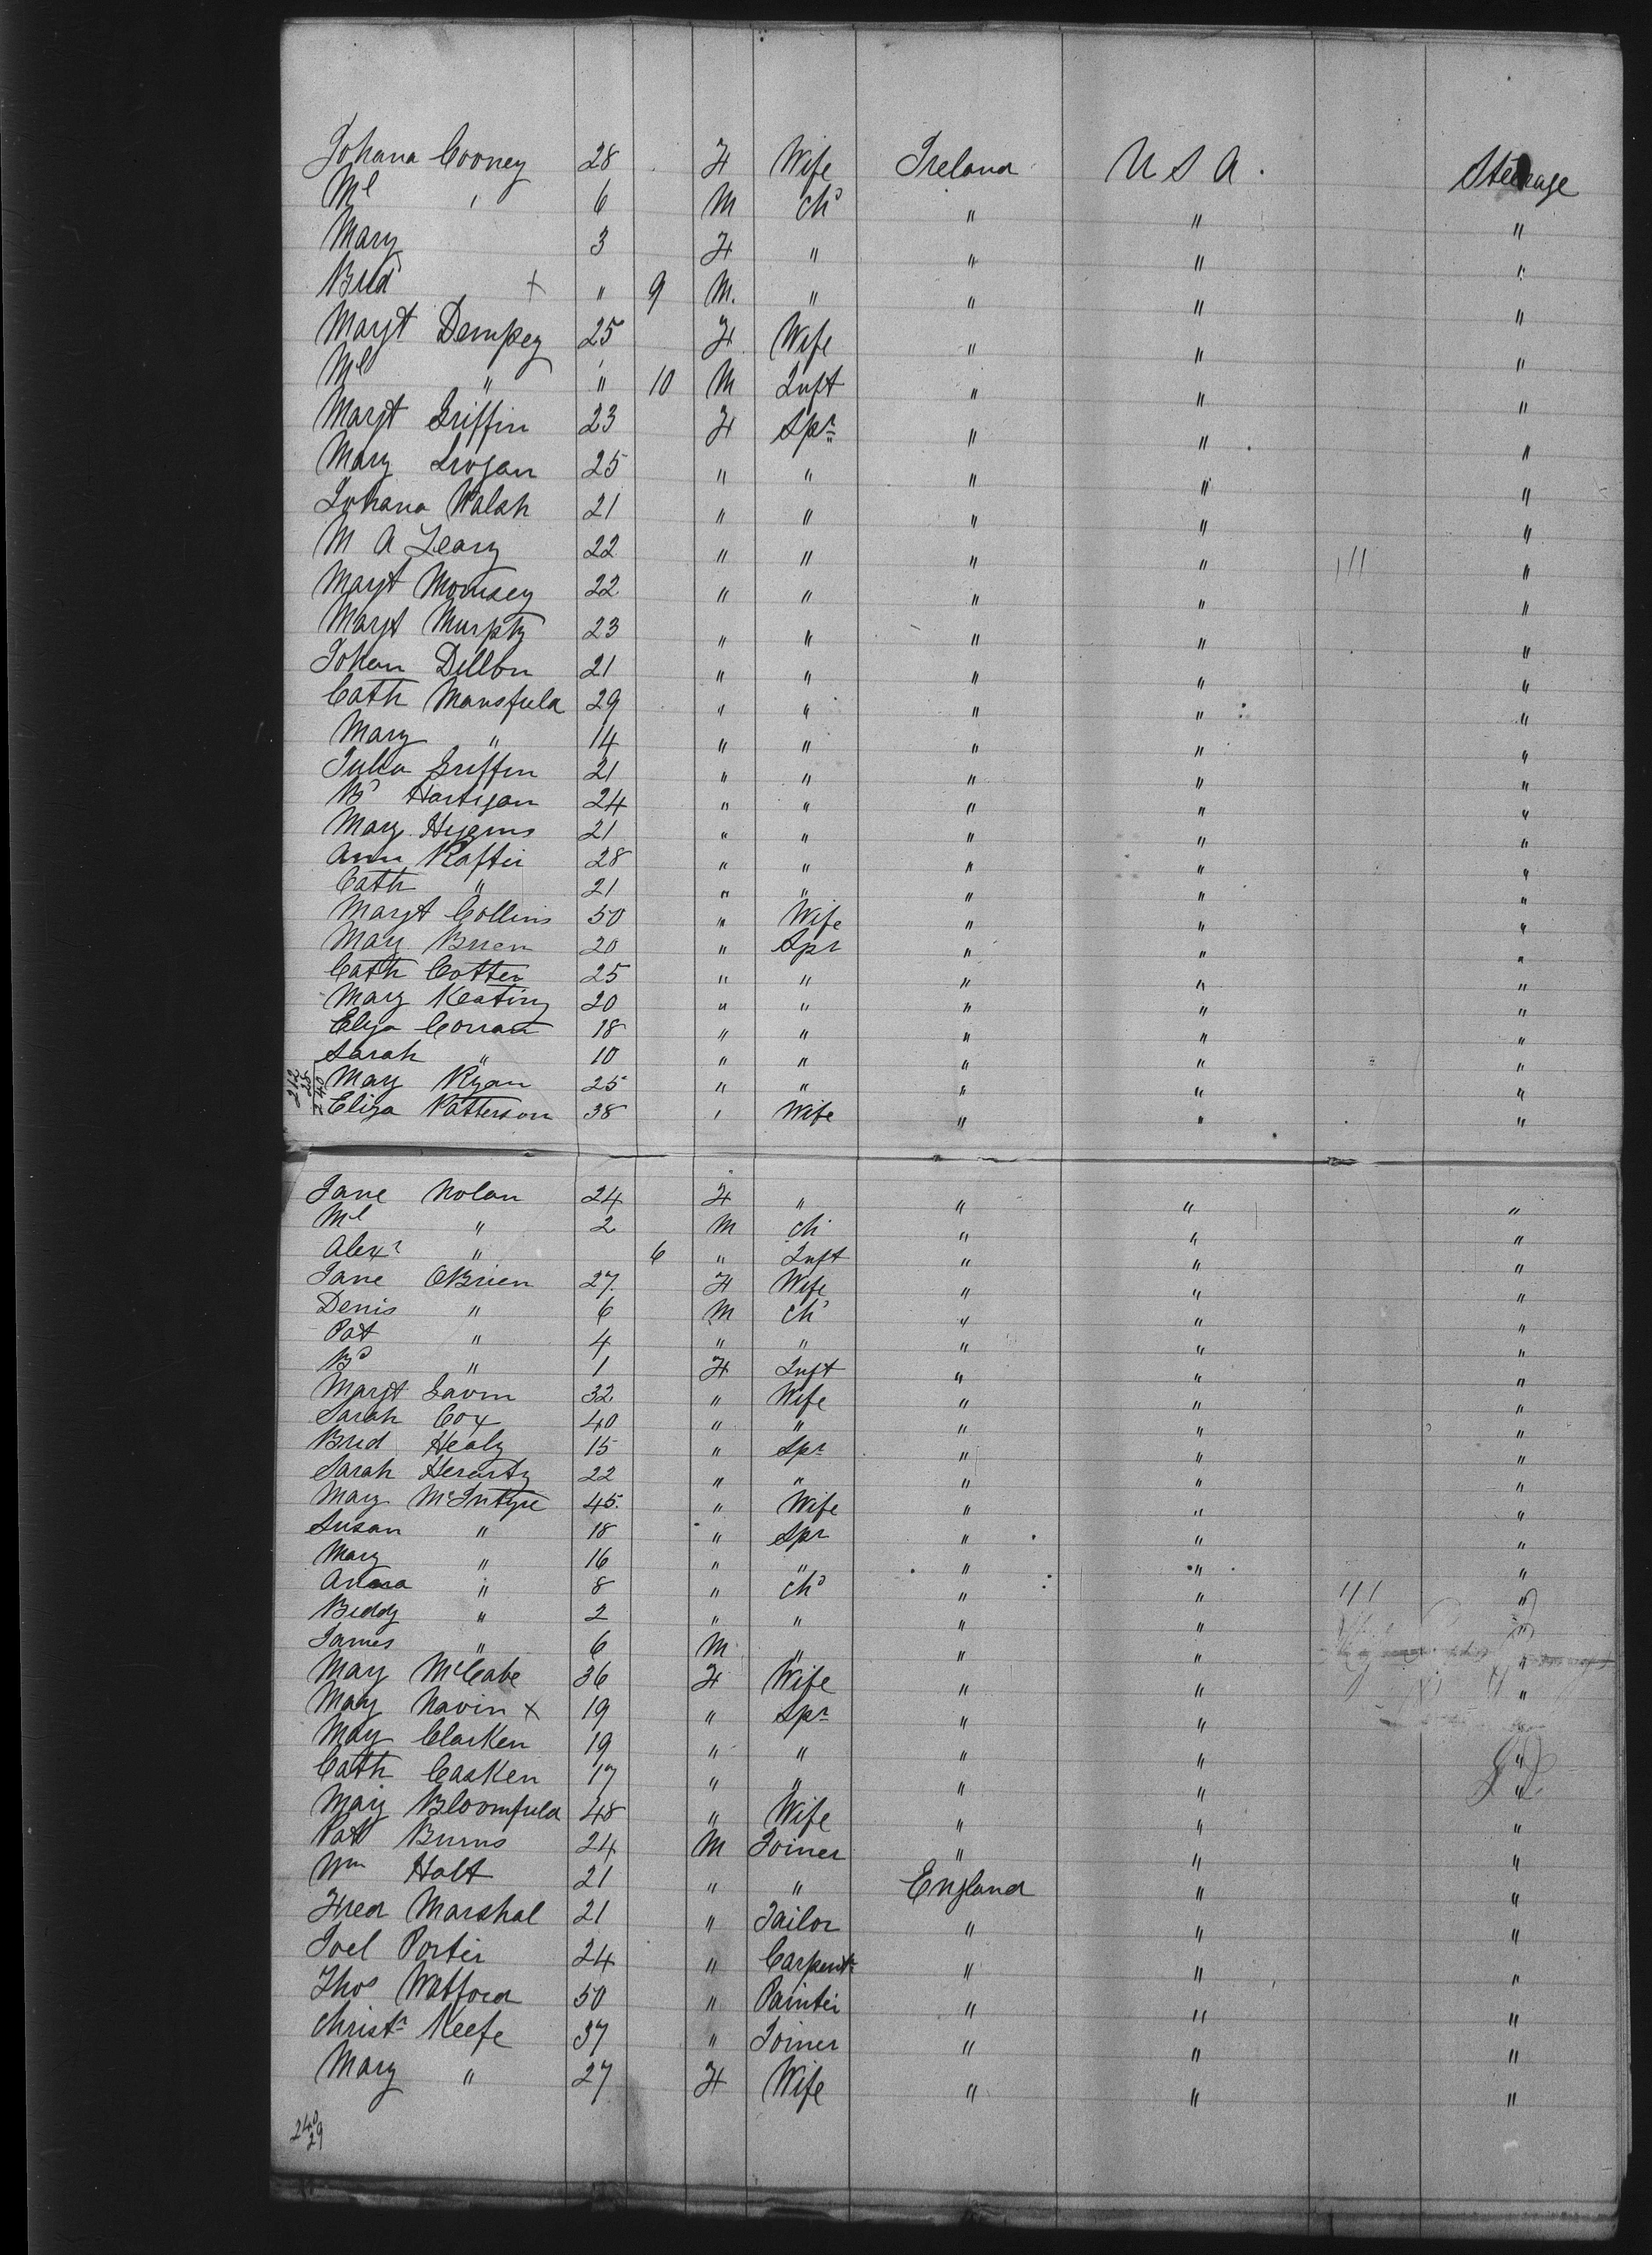 Johana Cooney 28 F Wife Ireland U S A. Steerage
Ml " 6 M Chd " " "
Mary 3 F " " " "
Brid + " 9 M. " " " "
Margt Dempsey 25 F Wife " " "
Ml " " 10 M Inft " " "
Margt Griffin 23 F Spr " " "
Mary Grogan 25 " " " " "
Johana Walsh 21 " " " " "
M A Leary 22 " " " " 111 "
Margt 22 " " " " "
Margt Murphy 23 " " " " "
Johan Dillon 21 " " " " "
Cath Mansfield 29 " " " " "
Mary " 14 " " " " "
Julia Griffin 21 " " " " "
Bd Hartigan 24 " " " " "
Mary Higgins 21 " " " " "
Ann Rafter 28 " " " " "
Cath " 21 " " " " "
Margt Collins 50 " Wife " " "
Mary Brien 20 " Spr " " "
Cath Cotter 25 " " " " "
Mary Keating 20 " " " " "
Eliza Corran 18 " " " " "
Sarah " 10 " " " " "
212
28
240
Mary Ryan 25 " " " " "
Eliza Patterson 38 " Wife " " "
Jane Nolan 24 F " " " "
Ml " 2 M Ch " " "
Alexr " 6 " Inft " " "
Jane OBrien 27. F Wife " " "
Denis " 6 M Chd " " "
Pat " 4 " " " " "
Bd " 1 F Inft " " "
Margt Gavin 32 " Wife " " "
Sarah Cox 40 " " " " "
Brid Healy 15 " Spr " " "
Sarah 22 " " " " "
Mary McIntyre 45. " Wife " " "
Susan " 18 " Spr " " "
Mary " 16 " " " " "
Anna " 8 " Chd " " 111 "
Biddy " 2 " " " " "
James " 6 M " " " "
Mary McCabe 36 F Wife " " "
Mary Navin + 19 " Spr " " "
Mary Clarken 19 " " " " "
Cath Casken 17 " " " " "
Mary Bloomfield 48 " Wife " " "
Pat Burns 24 M Joiner " " "
Wm Holt 21 " " England " "
Fred Marshal 21 " Tailor " " "
Joel Porter 24 " Carpentr " " "
Thos Watford 50 " Painter " " "
Christr Keefe 37 " Joiner " " "
Mary " 27 F Wife " " "
240
29